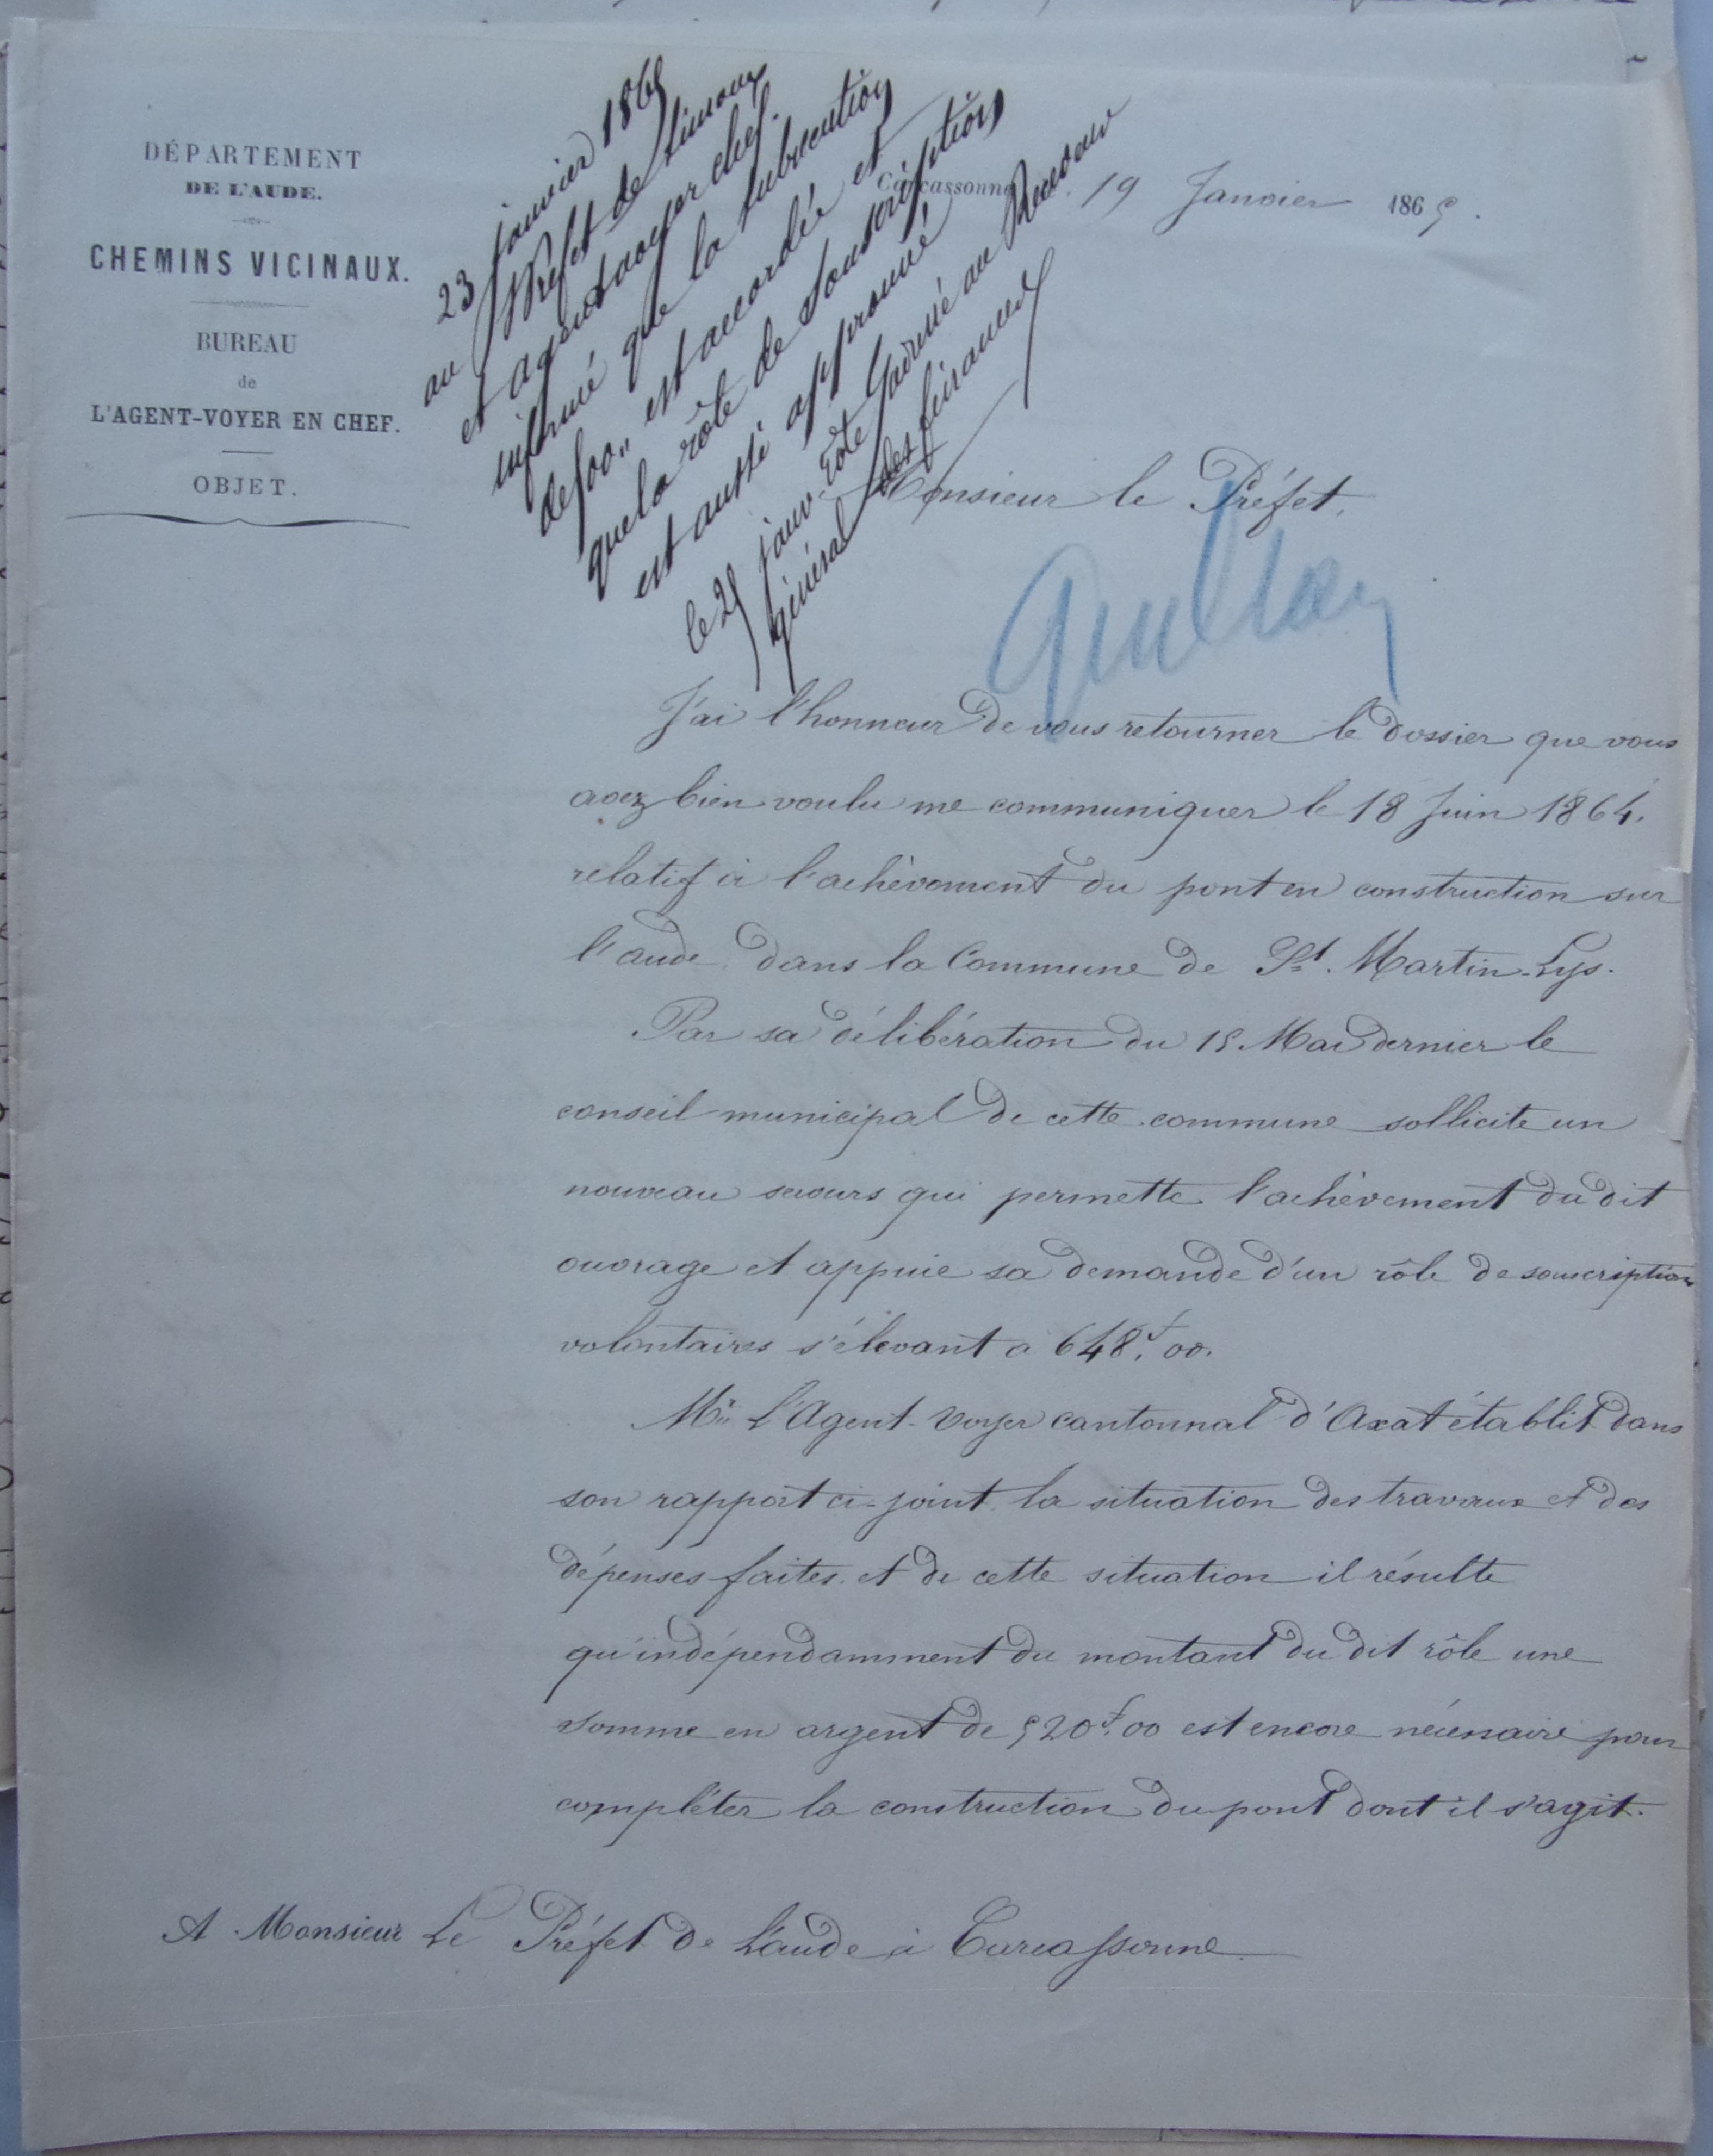 DÉPARTEMENT
DE L'AUDE.
CHEMINS VICINAUX.
BUREAU
de
L'AGENT-VOYER EN CHEF.
OBJET.
23 janvier 1865
au S Préfet de Limoux
et agent voyer chef.
informé que la subvention
de 500,, est accordée et
que la rôle de souscription
est aussi approuvé
le 25 janv. rôle au Receveur
général des finances
Carcassonne, 19 Janvier 1865.
Monsieur le Préfet,
J'ai l'honneur de vous retourner le dossier que vous
avez bien voulu me communiquer le 18 Juin 1864.
relatif à l'achèvement du pont en construction sur
l'aude dans la Commune de St. Martin-Lys.
Par sa délibération du 15 Mai dernier le
conseil municipal de cette commune sollicite un
nouveau secours qui permette l'achèvement du dit
ouvrage et appuie sa demande d'un rôle de souscription
volontaires s'élevant a 648f,00.
Mr. L'Agent-Voyer cantonnal d'Axat établit dans
son rapport ci-joint la situation des travaux et des
dépenses faites. et de cette situation il résulte
qu'indépendamment du montant du dit rôle une
somme en argent de 520f.00 est encore nécessaire pour
compléter la construction du pont dont il s'agit.
A Monsieur Le Préfet de L'aude à Carcassonne